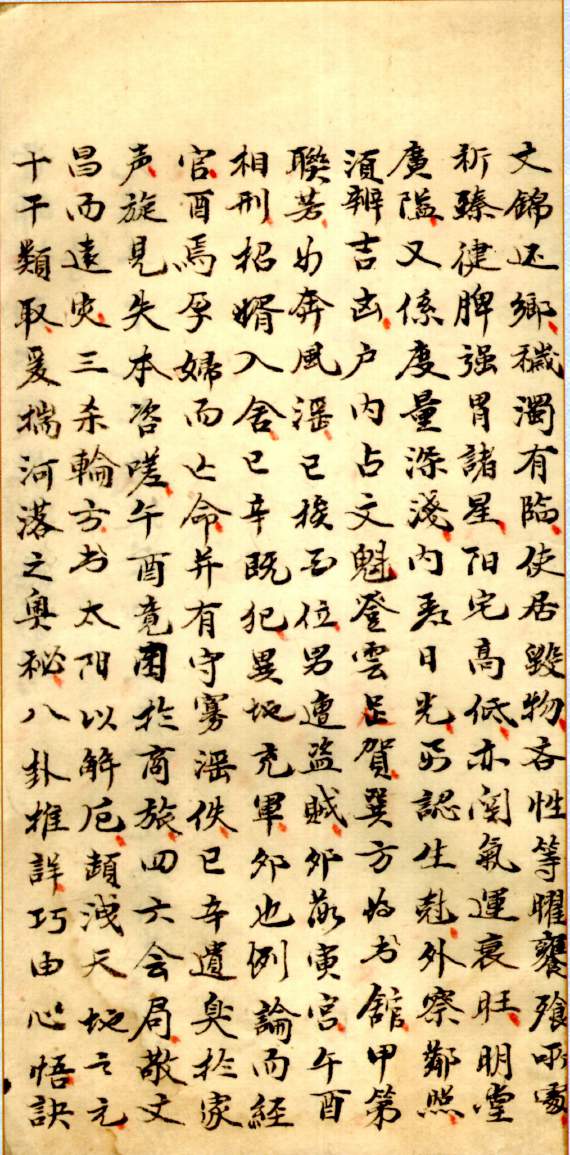 文錦还鄉穢濁有臨使居毀物吝性等曜饔飱
祈臻健脾强胃諸星阳宅高低亦関氣運衰旺明堂
廣隘又係度量深淺内看日光而認生尅外察鄰照
須辨吉凶户内占文魁登雲足賀巽方为书館甲第
聯芳午奔風滛巳挨酉位男遭盗賊卯敬寅宮午酉
相刑招婿入舍巳辛既犯異地充軍卯也例論而経
官酉焉孕婦而亡命并有守寡滛佚巳辛遺臭於家
声旋見失本咨嗟午酉竟困於商旅四六会局敬文
昌而遠灾三杀輪方书太阳以解厄顛洩天地之元
十干類取爰揣河落之奥秘八卦推詳巧由心悟訣